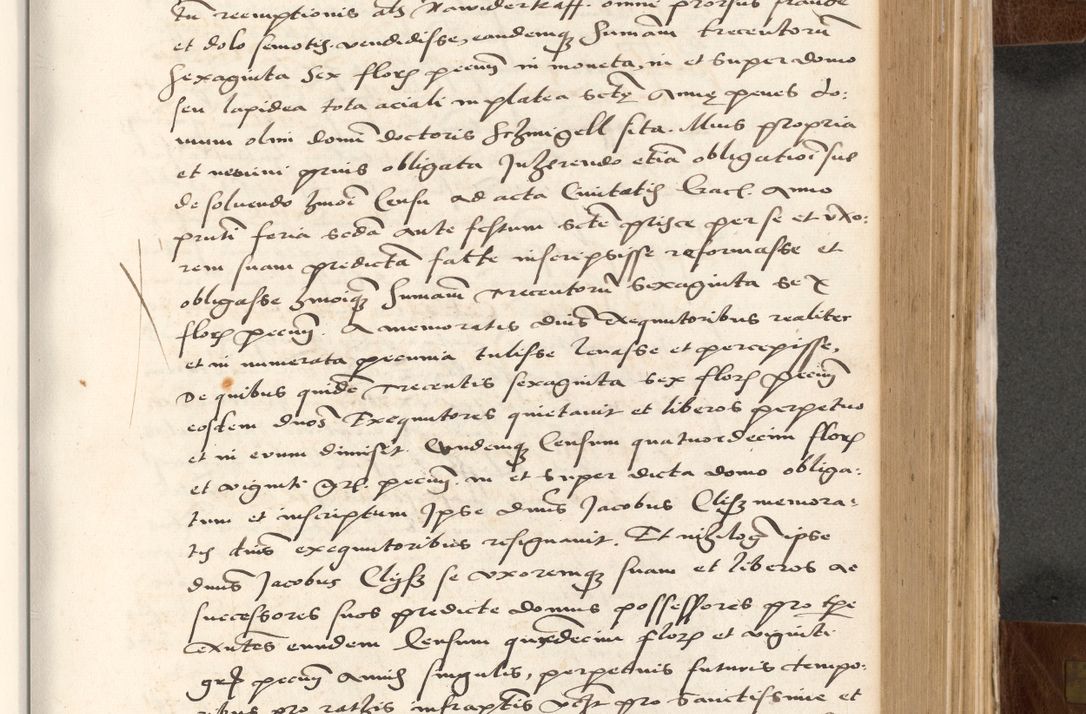 tū reemptionis als Nawiderkaff. omni prorsus fraude
et dolo semotis vendidisse, eandemq3 Sumam trecentorū
Sexaginta Sex flor pecun in moneta, in et super domo
seu lapidea tota aciali in platea sctę Annę penes do:
mum olim domī doctoris sita. Muis propria
et nemini prius obligata Inherendo etiā obligatiōi sue
de soluendo hmōi Censu ad acta Ciuitatis Crac. Anno
pnti feria scdā ante festum scte prisce per se et vxo:
rem suam predictā facte inscripsisse reformasse et
obligasse hmōiq3 Sumam trecentorū Sexaginta Sex
flor pecun. A memoratis dnis exequutoribus realiter
et in numerata pecunia tulisse leuasse et percepisse,
De quibus quidē trecentis sexaginta sex flor pecun
eosdem dnos Exequutores quietauit et liberos perpetuo
et in euum dimisit. Eundemq3 Censum quatuordecim flor
et viginti gr. pecun. in et super dicta domo obliga:
tum et inscriptum Ipse dnus Jacobus memora:
tis dnis exequutoribus resignauit. Et nihilo ipse
dnus Jacobus se vxoremq3 suam et liberos ac
successores suos predicte domus possessores pro tpe
exntes eundem Censum qurdecim flor et viginti
gr pecun Annis singulis, perpetuis futuris tempo:
ribus pro rathis infraptis pro Sanctissime et